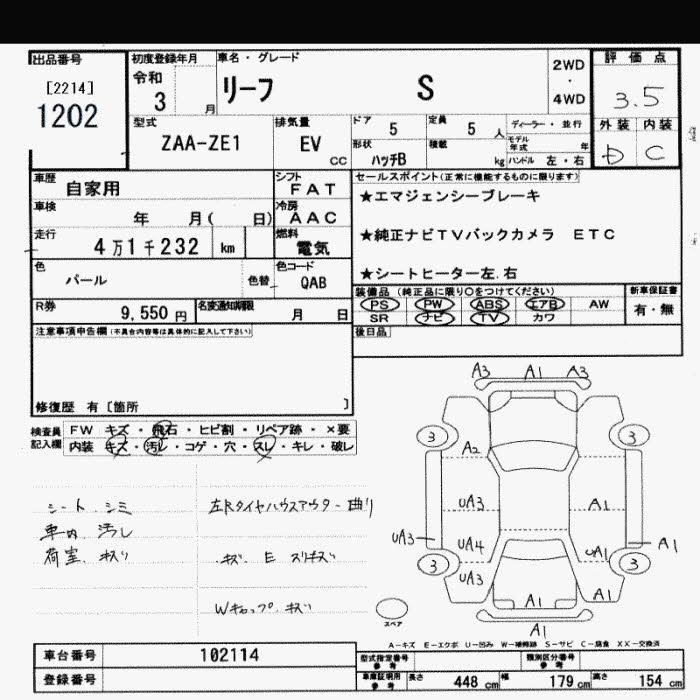 出品番号 初度登録年月 車名・グレード 評価点
[2214] 令和 リーフ S 2WD・4WD 3.5
1202 3 月
型式 排気量 ドア 5 定員 5 人 ディーラー・並行 外装 内装
ZAA-ZE1 EV cc 形状 ハッチB 積載 kg モデル年式 年 D C
ハンドル 左・右
車歴 自家用 シフト FAT セールスポイント(正常に機能するものに限ります)
車検 年 月( 日) 冷房 AAC ★エマジェンシーブレーキ
走行 4万1千232 km 燃料 電気 ★純正ナビTVバックカメラ ETC
色 パール 色替 色コード QAB ★シートヒーター左.右
R券 9,550円 名変通知期限 月 日 装備品(純正品に限り○をつけてください) 新車保証書
PS PW ABS エアB AW 有・無
SR ナビ TV カワ
注意事項申告欄(不具合内容等は具体的に記入して下さい) 後日品
修復歴 有〔箇所 〕
検査員記入欄 FW キズ・飛石・ヒビ割・リペア跡・×要
内装 キズ・汚レ・コゲ・穴・スレ・キレ・破レ
シート シミ 左Rタイヤハウスアウター曲り
車内 汚レ
荷室 キズ キズ E スリキズ
Wキャップ キズ
A3 A1 A3
3 3
A2
UA3 A1
UA3 UA4 UA1 A1
3 3
UA3 A1
A1
A1
スペア
A-キズ E-エクボ U-凹み W-補修跡 S-サビ C-腐食 XX-交換済
車台番号 102114 型式指定番号 参考 類別区分番号 参考
登録番号 車庫証明用 参考 長さ 448 cm 幅 179 cm 高さ 154 cm